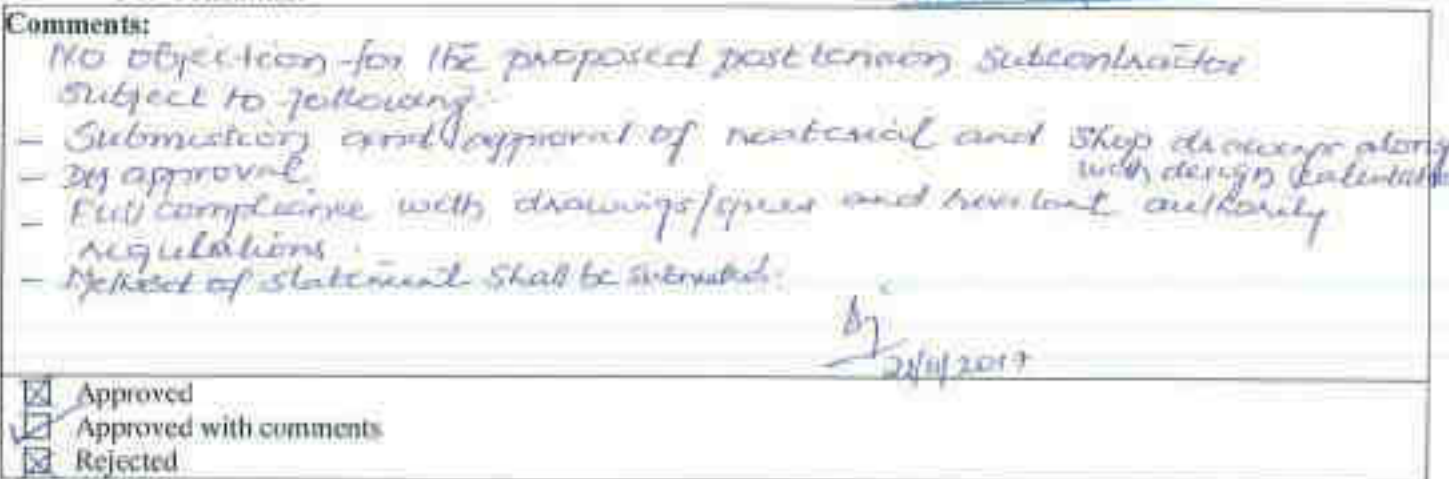 Comments:
No objection for the proposed post tension subcontractor
subject to following.
- Submission and approval of material and shop drawings along
with design calculation
- DM approval
- Full compliance with drawings/specs and relevant authority
regulations.
- Method of statement shall be submitted.
/11/2017
Approved
Approved with comments
Rejected